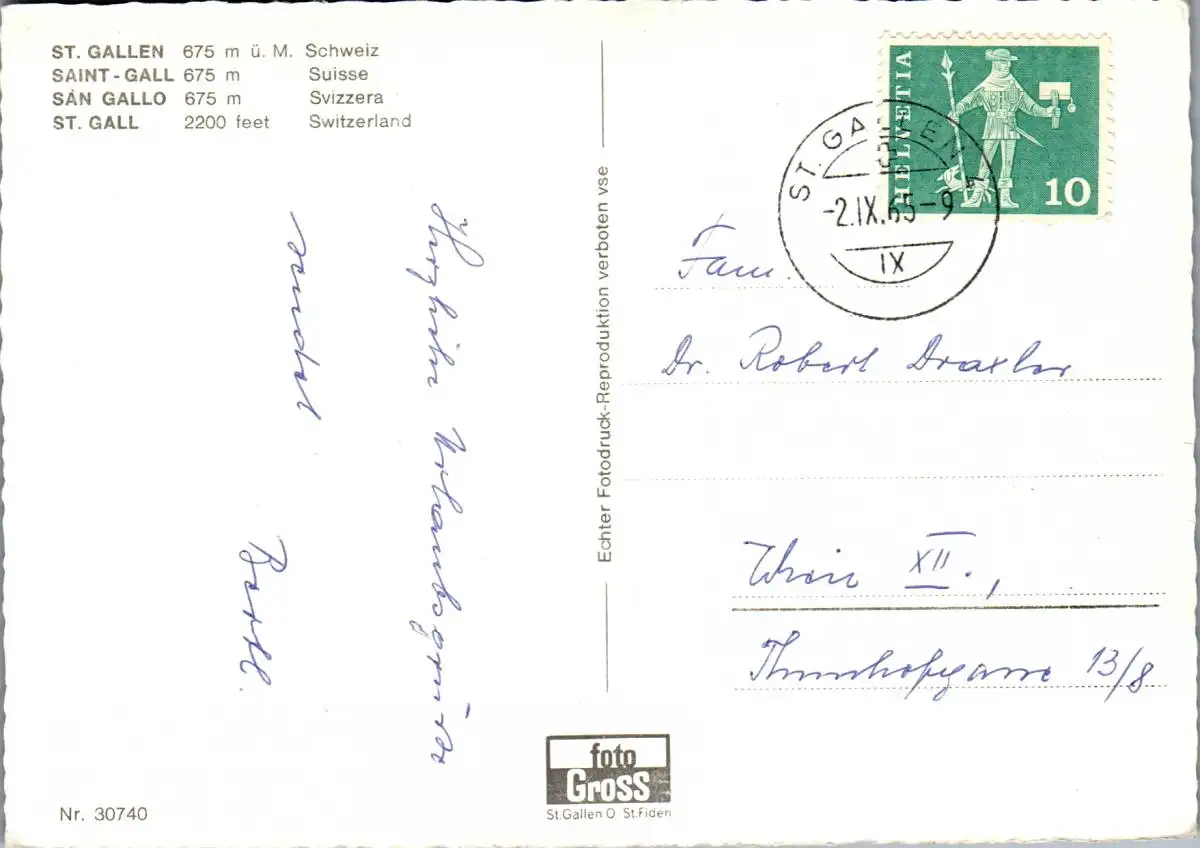 ST. GALLEN 675 m ü. M. Schweiz
SAINT-GALL 675 m Suisse
SAN GALLO 675 m Svizzera
ST. GALL 2200 feet Switzerland
Herzliche Urlaubsgrüße
sendet
Bertl.
Nr. 30740
Echter Fotodruck-Reproduktion verboten vse
foto
Gross
St.Gallen O St.Fiden
HELVETIA
10
ST. GALLEN
-2.IX.65-9
IX
Fam.
Dr. Robert Draxler
Wien XII.,
13/8